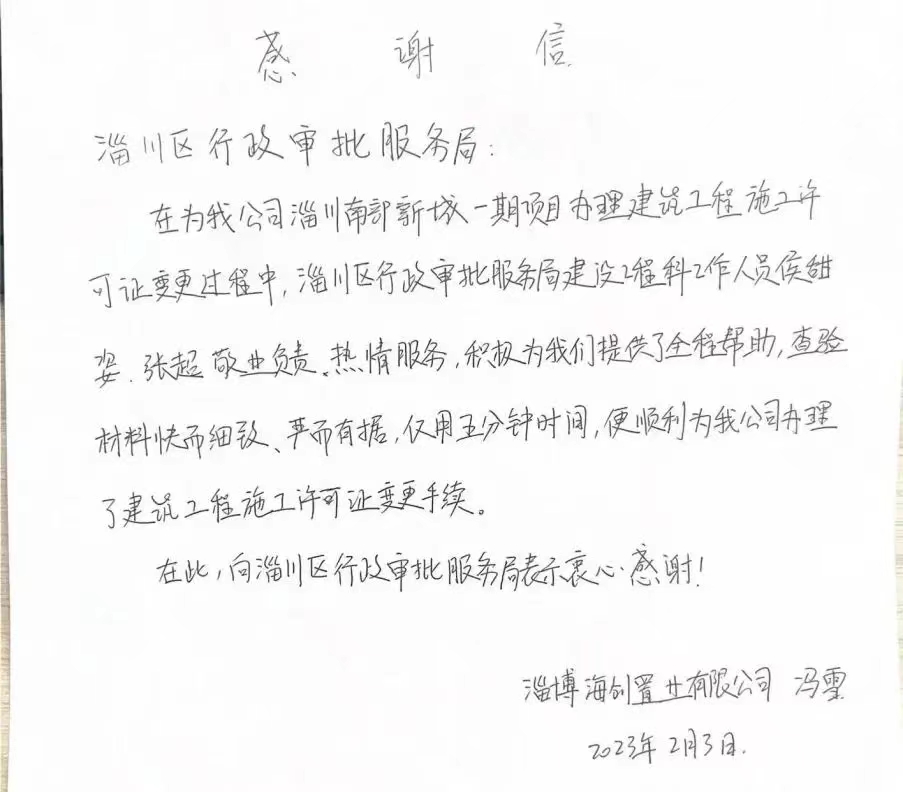 感谢信
淄川区行政审批服务局：
在为我公司淄川南部新城一期项目办理建筑工程施工许
可证变更过程中，淄川区行政审批服务局建设工程科工作人员侯甜
姿、张超敬业负责、热情服务，积极为我们提供了全程帮助，查验
材料快而细致、严而有据，仅用五分钟时间，便顺利为我公司办理
了建筑工程施工许可证变更手续。
在此，向淄川区行政审批服务局表示衷心感谢！
淄博海创置业有限公司 冯雪
2023年2月3日.